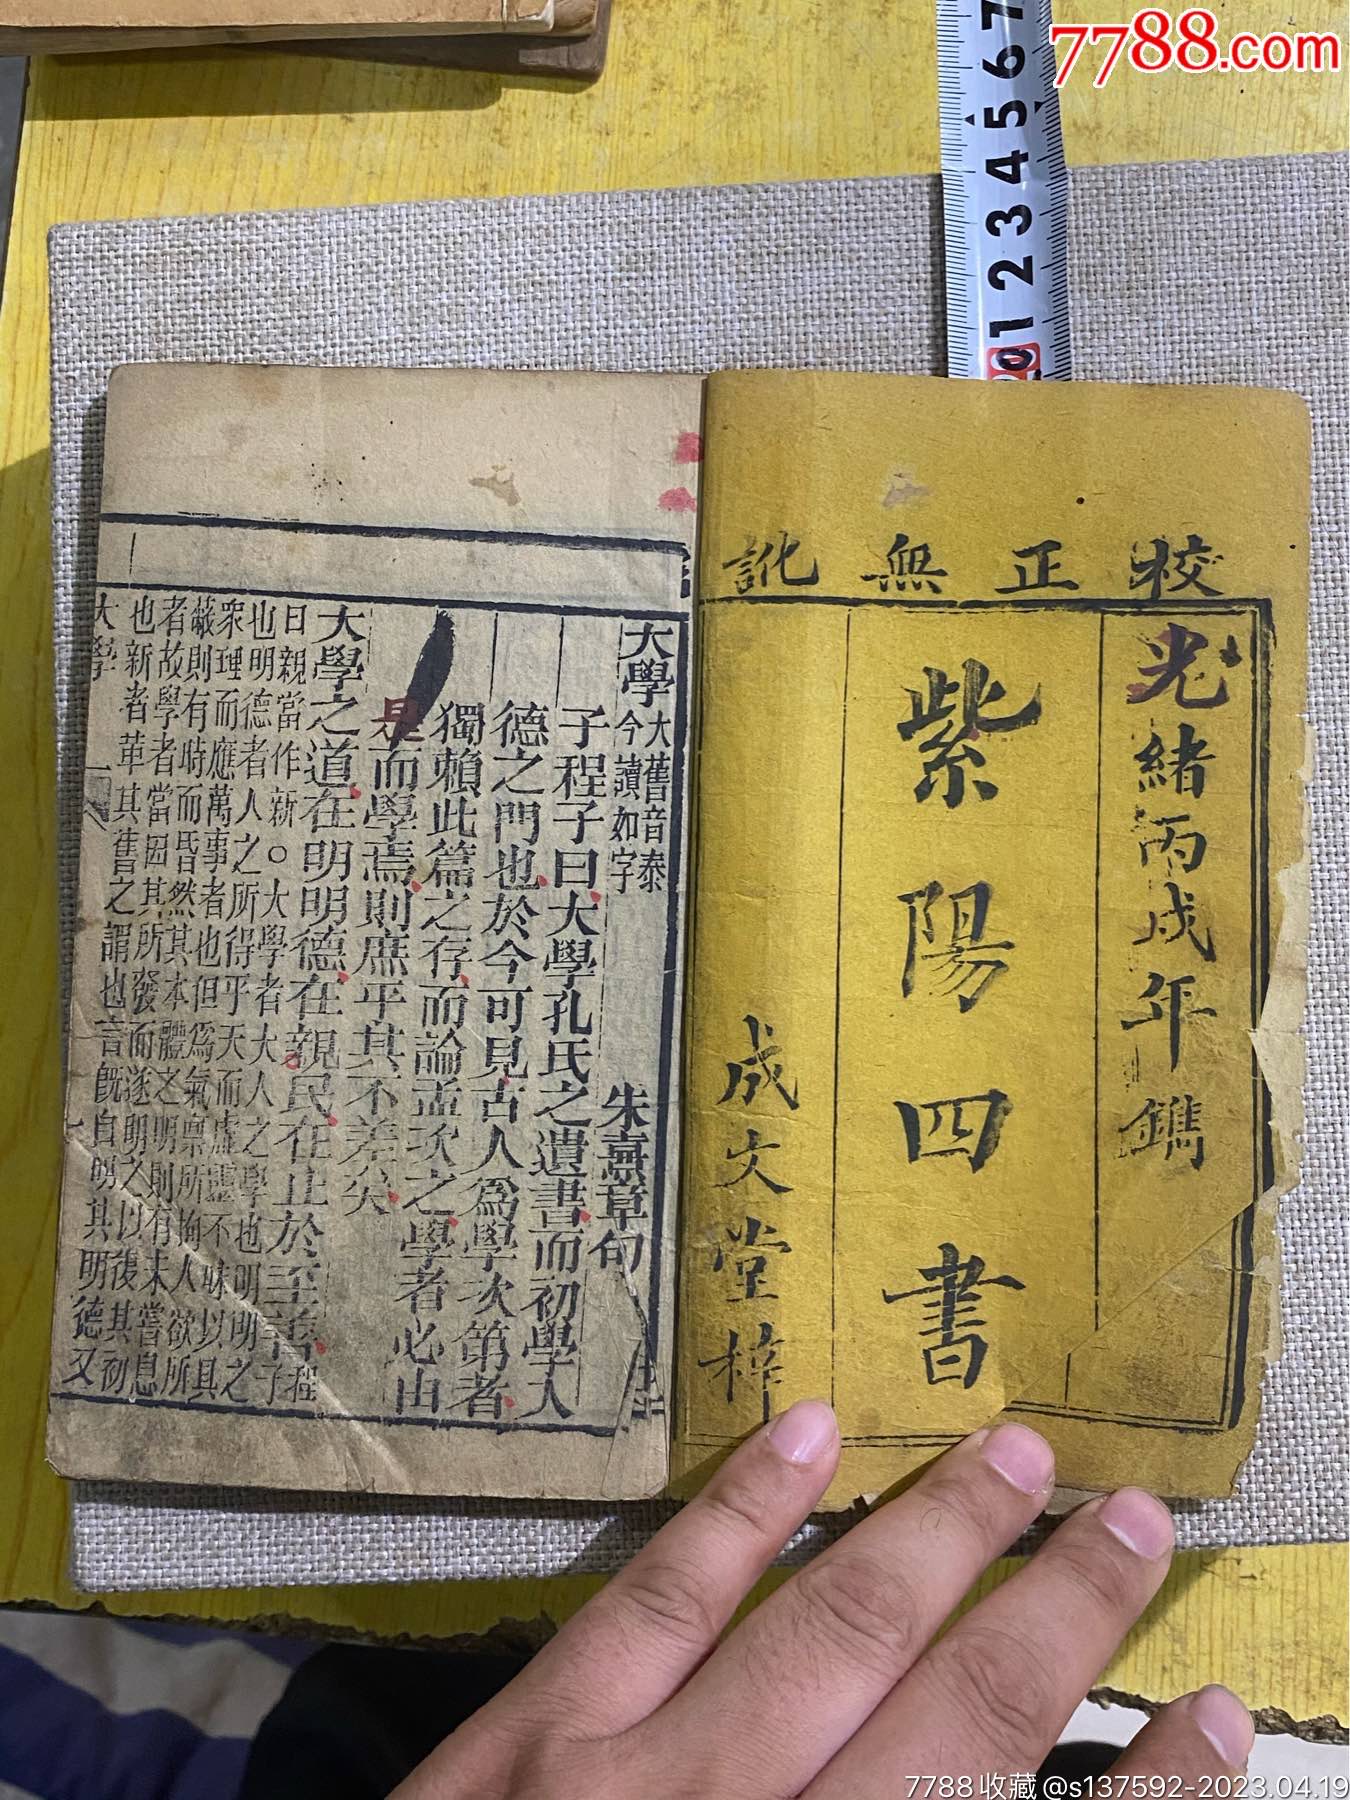 7788.com
7
6
5
4
3
2
1
校正無訛
光緒丙戌年鐫
紫陽四書
成文堂梓
大學 大舊音泰
今讀如字
朱熹章句
子程子曰大學孔氏之遺書而初學入
德之門也於今可見古人爲學次第者
獨賴此篇之存而論孟次之學者必由
是而學焉則庶乎其不差矣
大學之道在明明德在親民在止於至善 程子
曰親當作新○大學者大人之學也明明之
也明德者人之所得乎天而虛靈不昧以具
衆理而應萬事者也但爲氣稟所拘人欲所
蔽則有時而昏然其本體之明則有未嘗息
者故學者當因其所發而遂明之以復其初
也新者革其舊之謂也言既自明其明德又
大學
一
7788收藏@s137592-2023.04.19